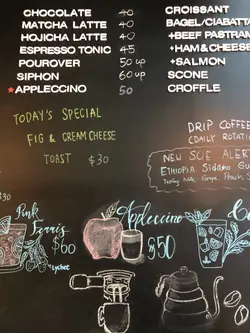 CHOCOLATE 40
MATCHA LATTE 40
HOJICHA LATTE 40
ESPRESSO TONIC 45
POUROVER 50 up
SIPHON 60 up
*APPLECCINO 50
CROISSANT
BAGEL/CIABATTA
+BEEF PASTRAM
+HAM&CHEESE
+SALMON
SCONE
CROFFLE
TODAY'S SPECIAL
FIG & CREAM CHEESE
TOAST $30
DRIP COFFEE
(DAILY ROTATI
NEW SOE ALERT
ETHIOPIA Sidamo
Tasting Note: Grape
*Pink
$60
Lychee
Appleccino
$50